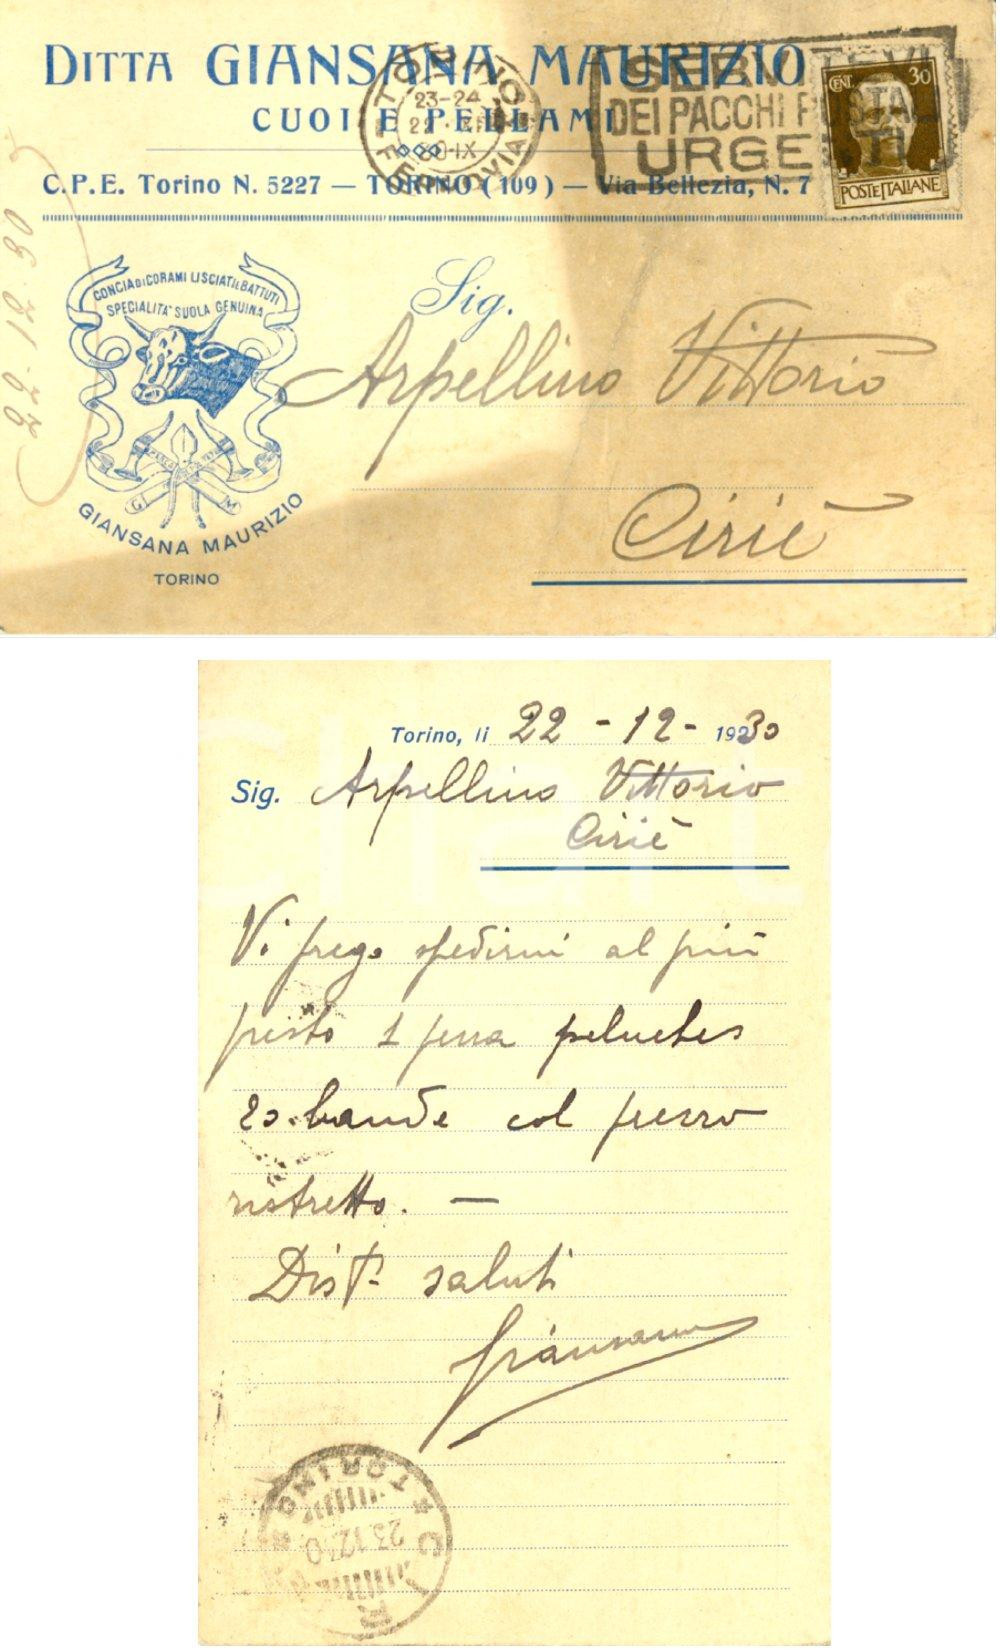 DITTA GIANSANA MAURIZIO
CUOI E PELLAMI
C.P.E. Torino N. 5227 — TORINO (109) — Via Bellezia, N. 7
TORINO
FERROVIA
23-24
22
30-IX
SERVITEVI
DEI PACCHI POSTALI
URGENTI
CENT. 30
POSTE ITALIANE
22.12.30
CONCIA DI CORAMI LISCIATI E BATTUTI
SPECIALITÀ SUOLA GENUINA
G M
GIANSANA MAURIZIO
TORINO
Sig.
Arpellino Vittorio
Ciriè
Torino, li 22 - 12 - 1930
Sig. Arpellino Vittorio
Ciriè
Vi prego spedirmi al più
presto 1 pezza peluches
bande col prezzo
ristretto. —
Dist. saluti
Giansana
CIRIÈ
TORINO
23.12.30